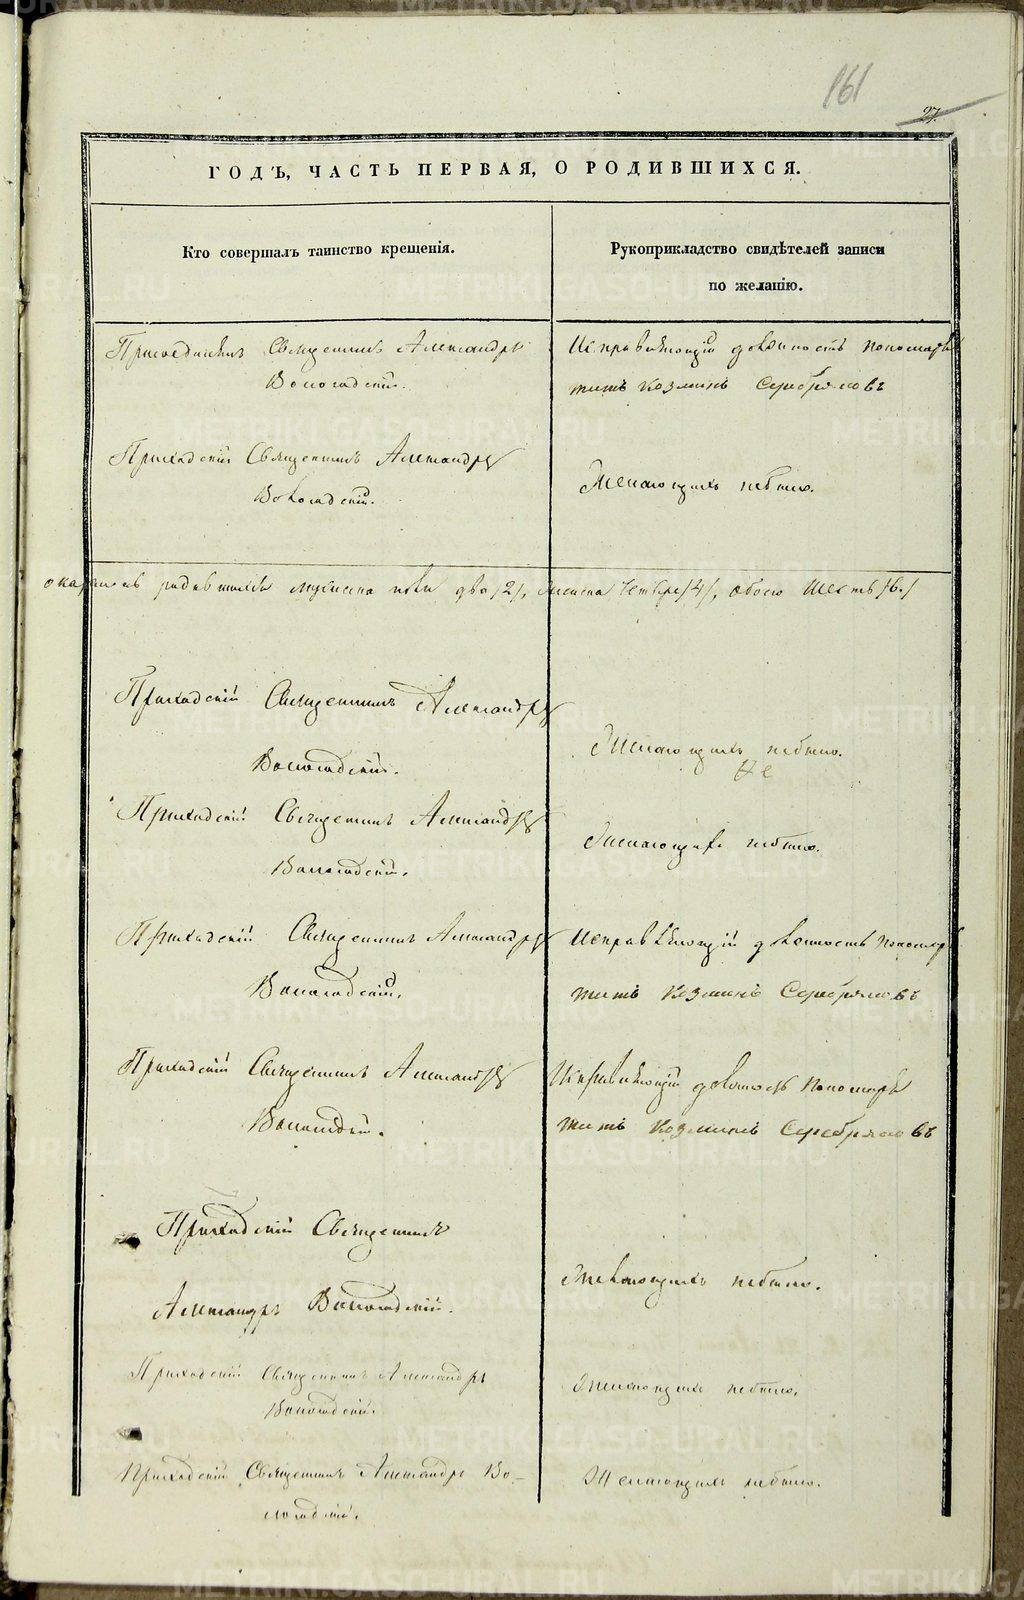 161
27.
ГОДЪ, ЧАСТЬ ПЕРВАЯ, О РОДИВШИХСЯ.
Кто совершалъ таинство крещенія.
Рукоприкладство свидѣтелей записи
по желанію.
Приходскій Священникъ Александръ
Вологодскій.
Исправляющій должность пономаря
Титъ Козминъ Серебряковъ
Приходскій Священникъ Александръ
Вологодскій.
Желающихъ небыло.
родившихся мужеска пола два /2/, женска четыре /4/, обоего шесть /6./
Приходскій Священникъ Александръ
Вологодскій.
Желающихъ небыло.
Не
Приходскій Священникъ Александръ
Вологодскій.
Желающихъ небыло.
Приходскій Священникъ Александръ
Вологодскій.
Исправляющій должность пономаря
Титъ Козминъ Серебряковъ
Приходскій Священникъ Александръ
Вологодскій.
Исправляющій должность пономаря
Титъ Козминъ Серебряковъ
Приходскій Священникъ
Александръ Вологодскій.
Желающихъ небыло.
Приходскій Священникъ Александръ
Вологодскій.
Желающихъ небыло.
Приходскій Священникъ Александръ Во-
логодскій.
Желающихъ небыло.
METRIKI.GASO-URAL.RU